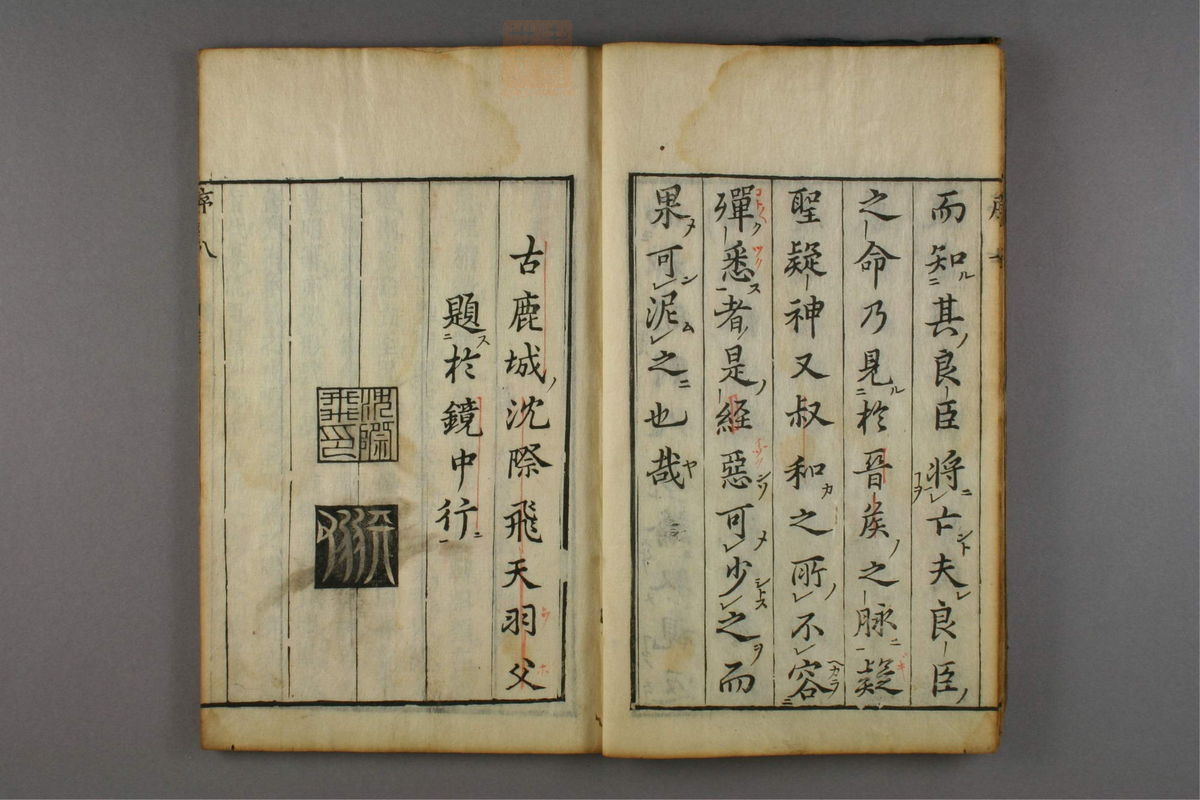 而知其良臣將亡夫良臣
之命乃見於晉矦之脉疑
聖疑神又叔和之所不容
殫悉者是経惡可少之而
果可泥之也哉
古鹿城沈際飛天羽父
題於鏡中行
沈際飛印
序八